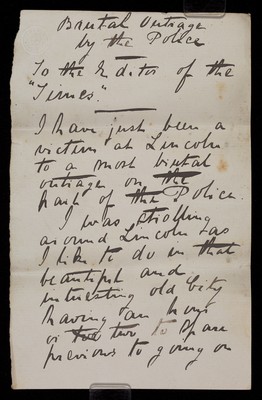 Brutal Outrage
by the Police
To the Editor of the
"Times".
I have just been a
victim at Lincoln
to a most brutal
outrage on the
part of the Police.
I was strolling
around Lincoln as
I like to do in that
beautiful and
interesting old City
having an hour
or two two to spare
previous to going on